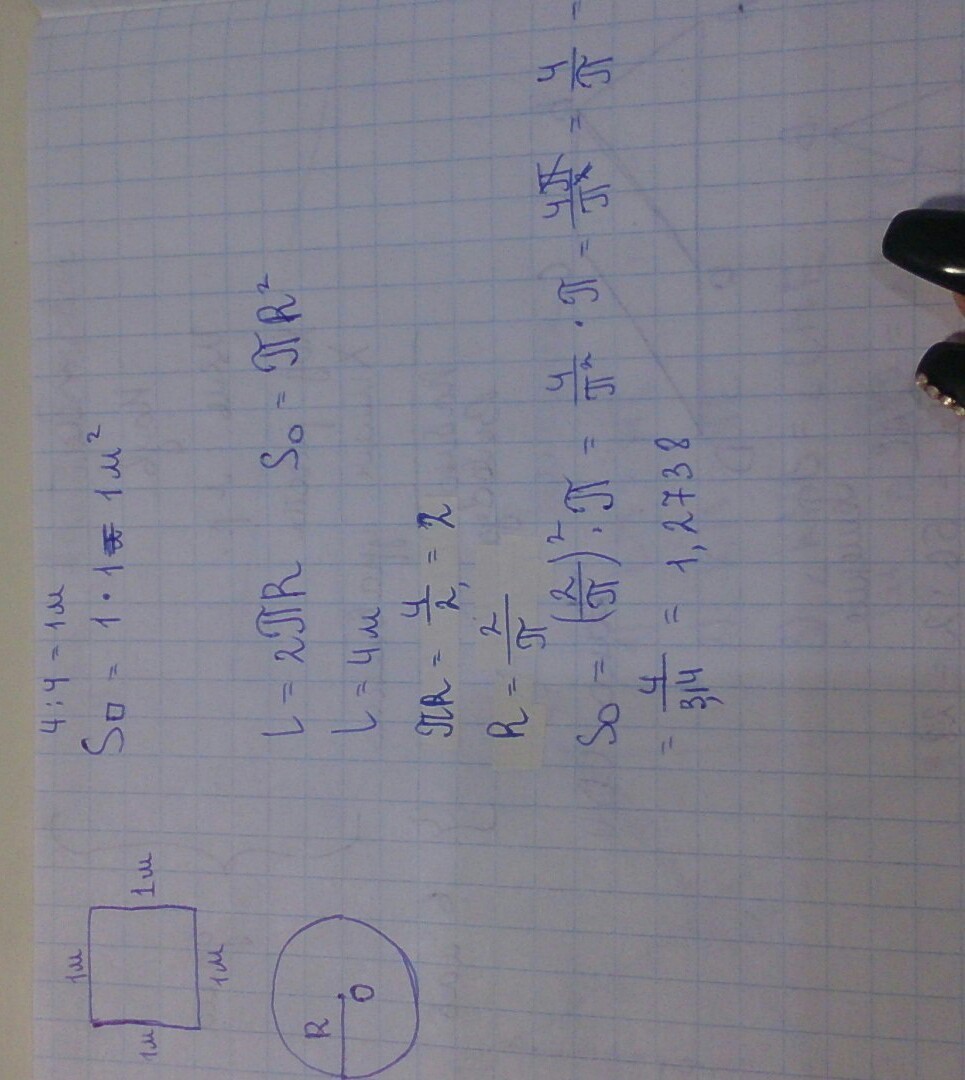 1м
1м
1м
1м
4:4 = 1м
S□ = 1·1 = 1м²
R
O
L = 2πR S○ = πR²
L = 4м
πR = 4/2 = 2
R = 2/π
S○ = (2/π)² · π = 4/π² · π = 4π/π² = 4/π =
= 4/3,14 = 1,2738